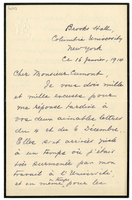 Brooks Hall,
Columbia University
New York
Ce 16 janvier, 1910
Cher Monsieur Cumont,
Je vous dois mille
et mille excuses pour
ma réponse tardive à
vos deux aimables lettres
du 4 et du 6 Décembre.
Elles sont arrivées juste
à un temps où j'étais
très surmenée par mon
travail à l'Université,
et en même pour les